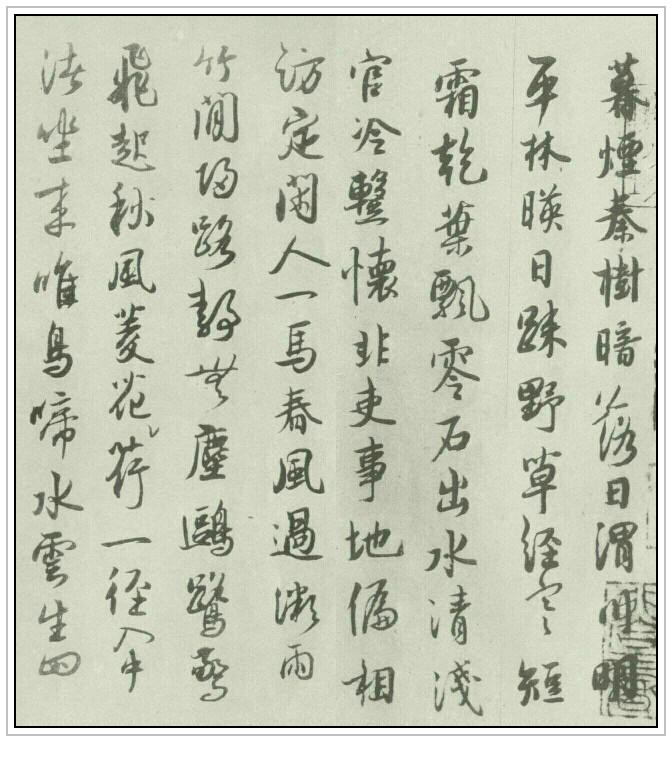 暮煙秦樹暗落日渭川明
平林暎日疎野草經寒短
霜乾葉飄零石出水清淺
官冷懷非吏事地偏相
訪定閑人一馬春風過微雨
竹間歸路靜無塵鷗鷺驚
飛起秋風菱花荷一徑入中
渚坐來唯鳥啼水雲生四